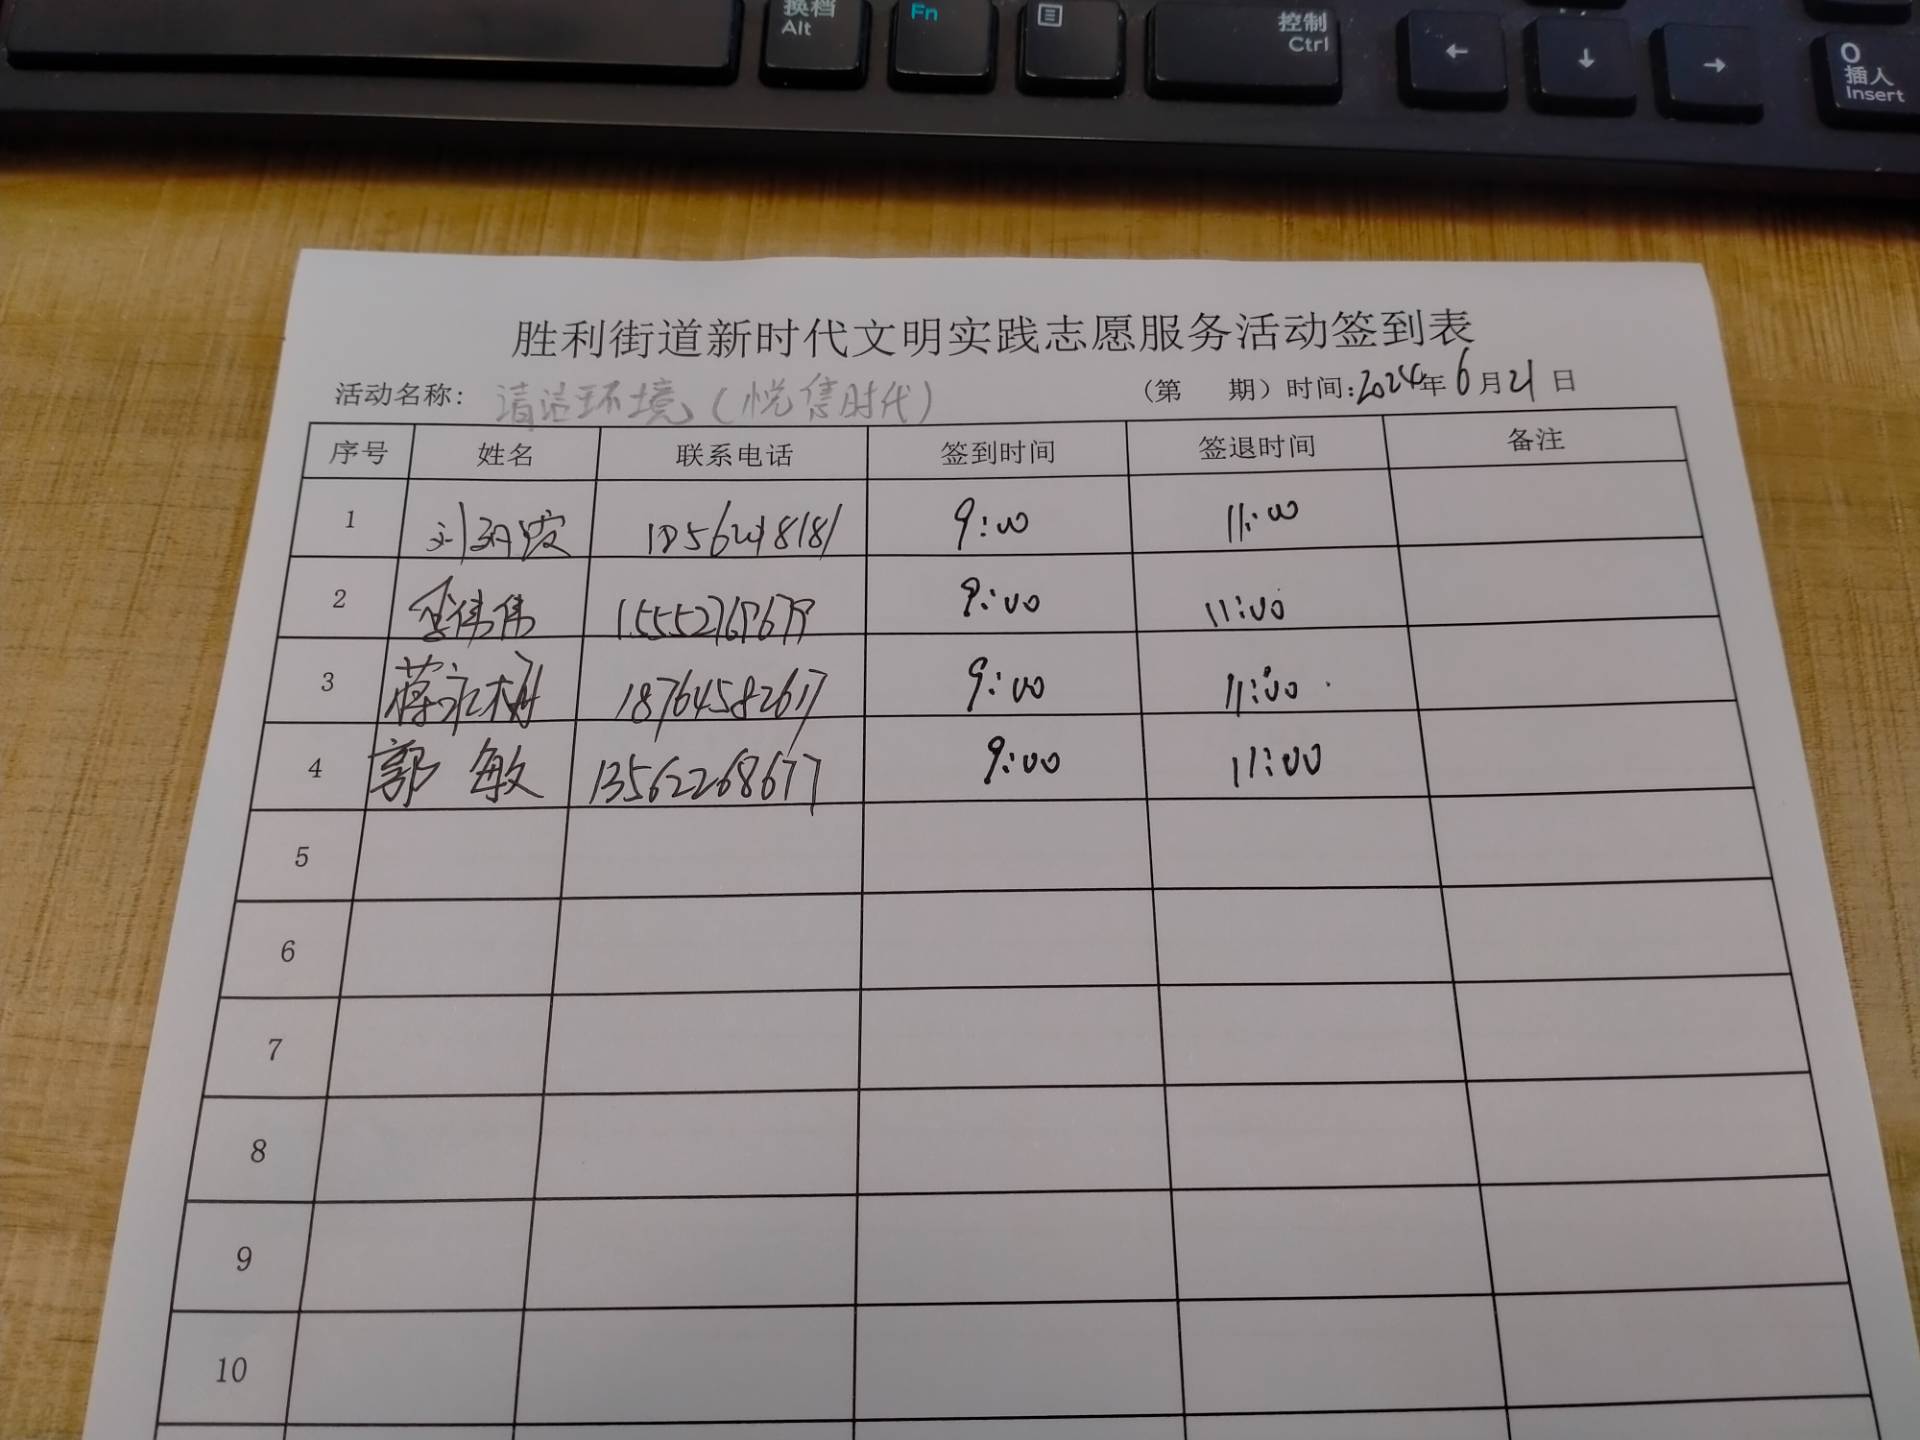 换档
Alt
Fn
控制
Ctrl
←
↓
→
0
插入
Insert
胜利街道新时代文明实践志愿服务活动签到表
活动名称: 清洁环境(悦隽时代) (第 期)时间:2024年6月21日
序号 姓名 联系电话 签到时间 签退时间 备注
1 9:00 11:00
2 伟伟 9:00 11:00
3 蒋永梅 18764582617 9:00 11:00
4 郭敏 13562268677 9:00 11:00
5
6
7
8
9
10